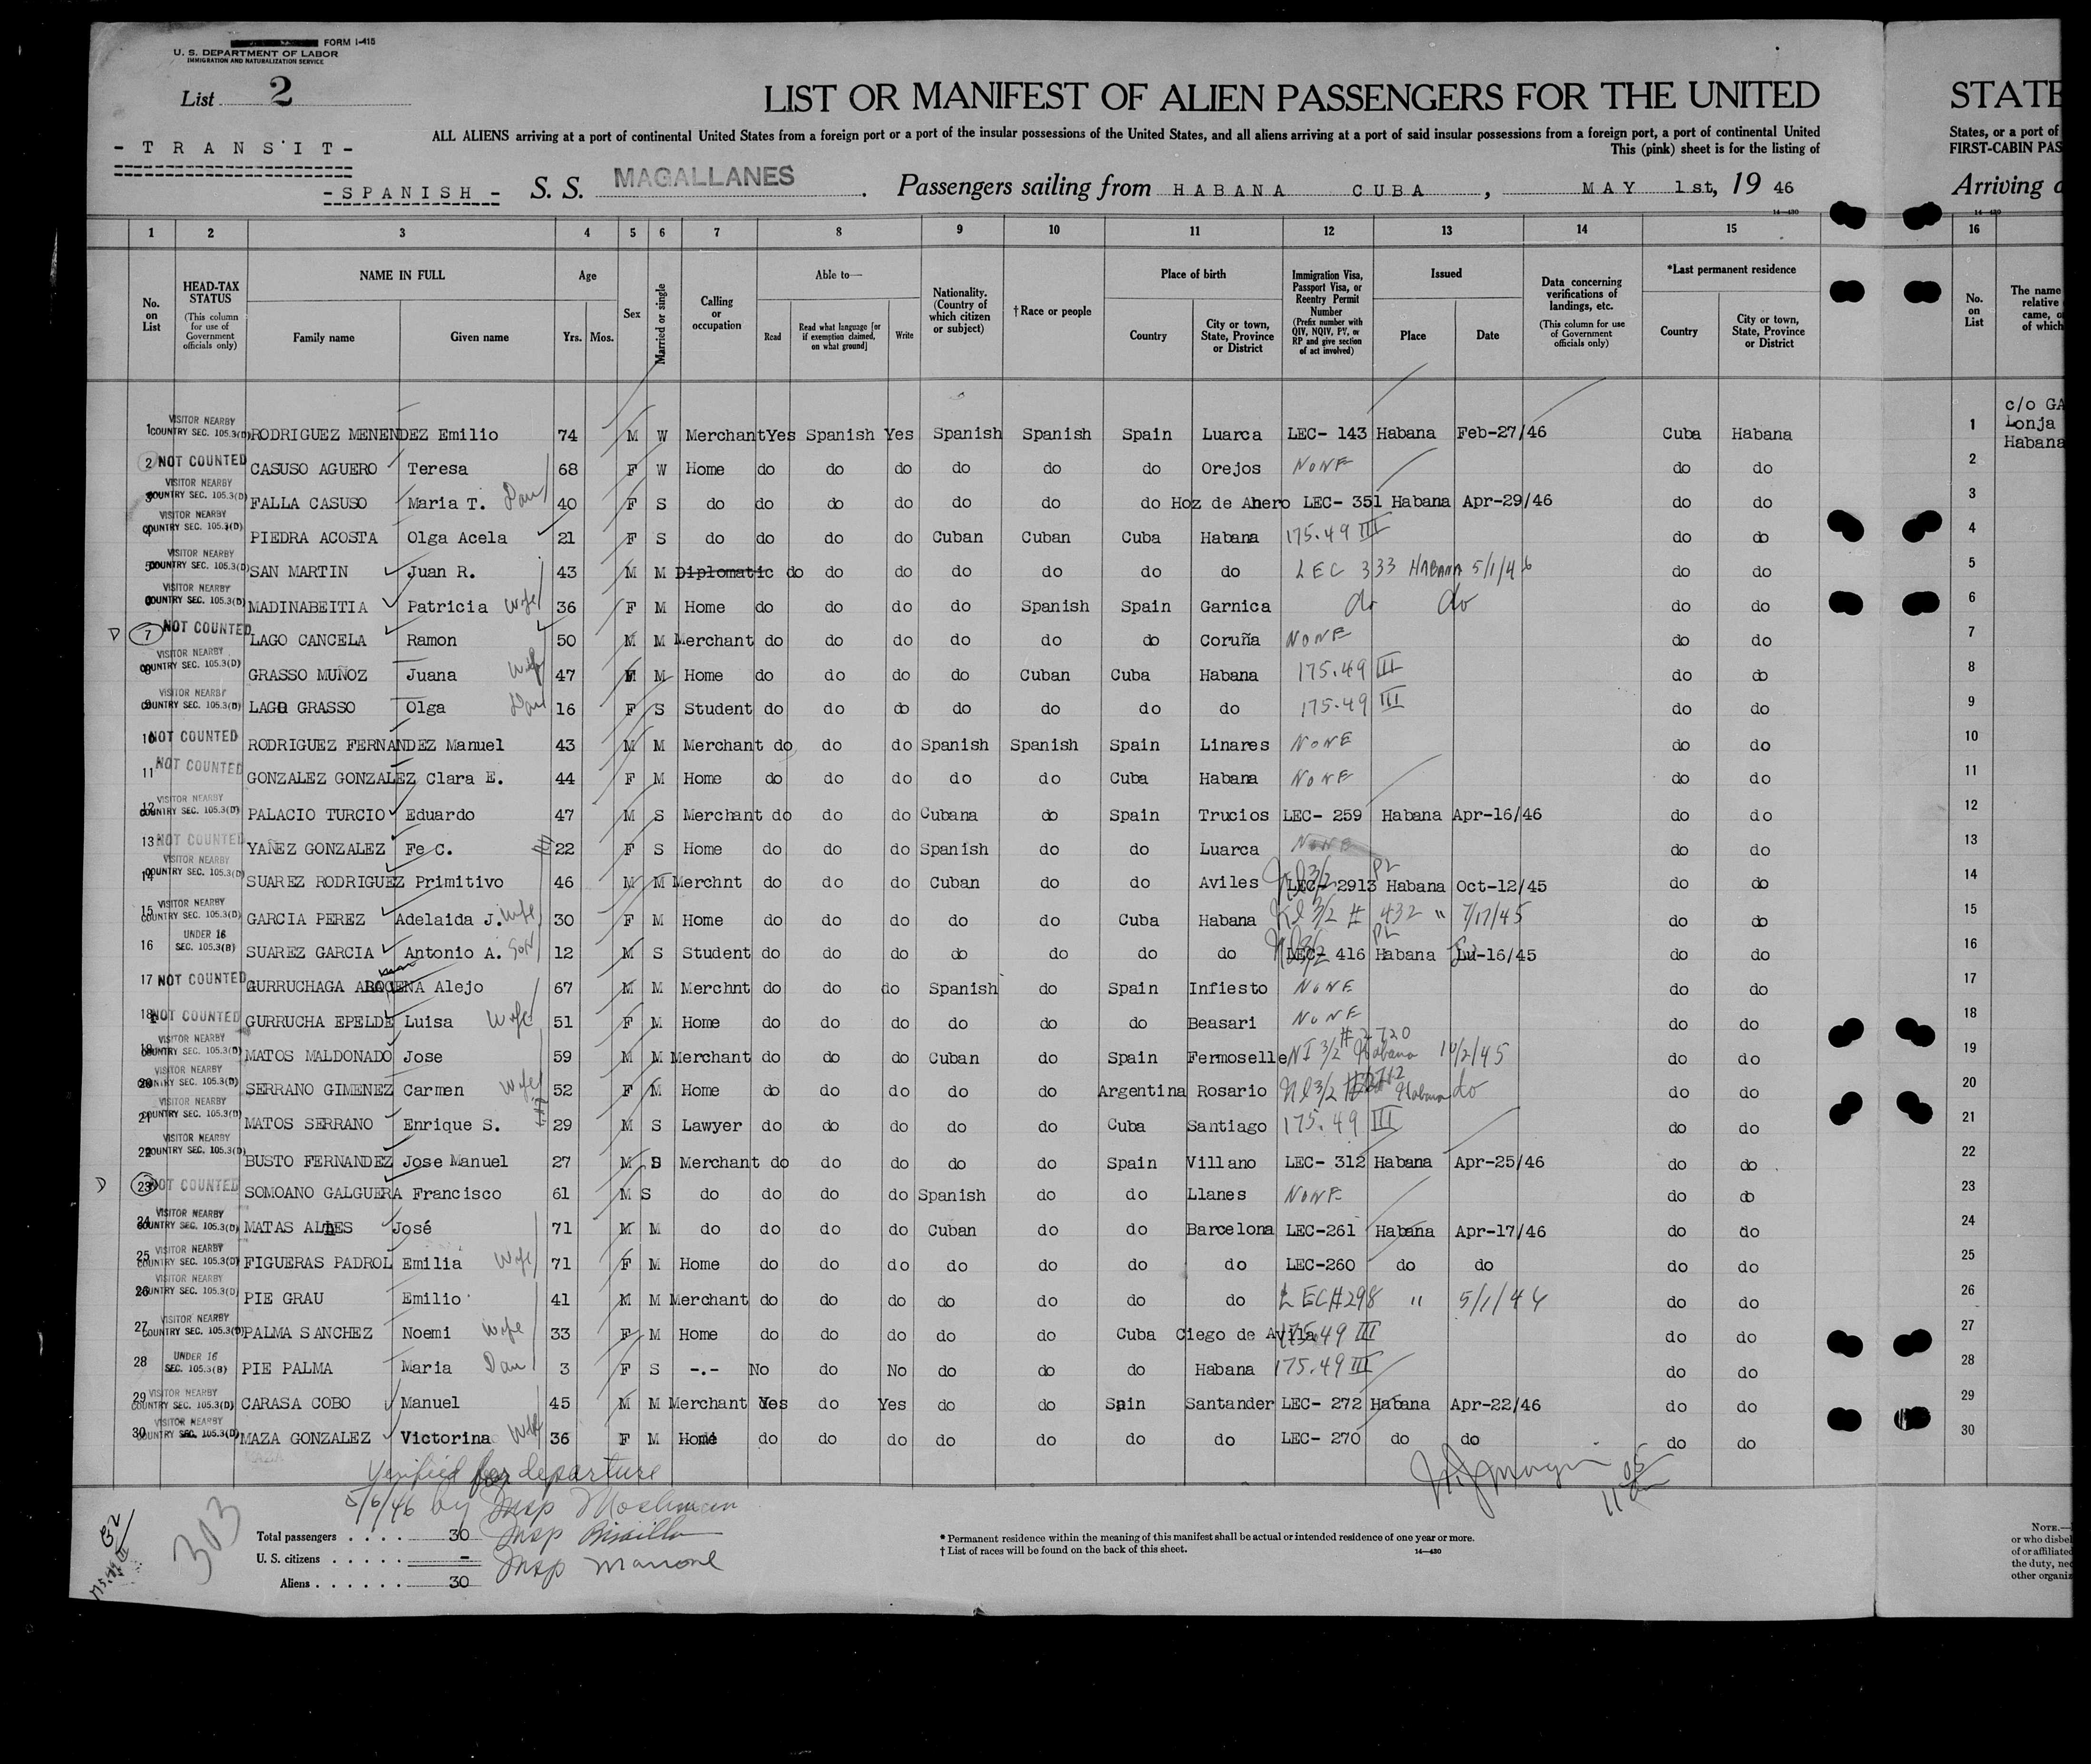 FORM I-415
U. S. DEPARTMENT OF LABOR
IMMIGRATION AND NATURALIZATION SERVICE
List 2
LIST OR MANIFEST OF ALIEN PASSENGERS FOR THE UNITED
STATE
- T R A N S I T -
ALL ALIENS arriving at a port of continental United States from a foreign port or a port of the insular possessions of the United States, and all aliens arriving at a port of said insular possessions from a foreign port, a port of continental United
States, or a port of
This (pink) sheet is for the listing of
FIRST-CABIN PAS
- SPANISH - S. S. MAGALLANES. Passengers sailing from HABANA CUBA, MAY 1st, 19 46
Arriving
14-430
1 2 3 4 5 6 7 8 9 10 11 12 13 14 15 16
No. on List
HEAD-TAX STATUS (This column for use of Government officials only)
NAME IN FULL Family name Given name
Age Yrs. Mos.
Sex
Married or single
Calling or occupation
Able to— Read Read what language [or if exemption claimed, on what ground] Write
Nationality. (Country of which citizen or subject)
†Race or people
Place of birth Country City or town, State, Province or District
Immigration Visa, Passport Visa, or Reentry Permit Number (Prefix number with QIV, NQIV, PV, or RP and give section of act involved)
Issued Place Date
Data concerning verifications of landings, etc. (This column for use of Government officials only)
*Last permanent residence Country City or town, State, Province or District
No. on List
The name relative came, of which
1 VISITOR NEARBY COUNTRY SEC. 105.3(D) RODRIGUEZ MENENDEZ Emilio 74 M W Merchant Yes Spanish Yes Spanish Spanish Spain Luarca LEC- 143 Habana Feb-27/46 Cuba Habana 1 c/o GA Lonja Habana
2 NOT COUNTED CASUSO AGUERO Teresa 68 F W Home do do do do do do Orejos NONE do do 2
3 VISITOR NEARBY COUNTRY SEC. 105.3(D) FALLA CASUSO Maria T. Dau 40 F S do do do do do do do Hoz de Anero LEC- 351 Habana Apr-29/46 do do 3
4 VISITOR NEARBY COUNTRY SEC. 105.3(D) PIEDRA ACOSTA Olga Acela 21 F S do do do do Cuban Cuban Cuba Habana 175.49 III do do 4
5 VISITOR NEARBY COUNTRY SEC. 105.3(D) SAN MARTIN Juan R. 43 M M Diplomatic do do do do do do do LEC 333 HABANA 5/1/46 do do 5
6 VISITOR NEARBY COUNTRY SEC. 105.3(D) MADINABEITIA Patricia Wife 36 F M Home do do do do Spanish Spain Garnica do do do do 6
7 NOT COUNTED LAGO CANCELA Ramon 50 M M Merchant do do do do do do Coruña NONE do do 7
8 VISITOR NEARBY COUNTRY SEC. 105.3(D) GRASSO MUÑOZ Juana Wife 47 F M Home do do do do Cuban Cuba Habana 175.49 III do do 8
9 VISITOR NEARBY COUNTRY SEC. 105.3(D) LAGO GRASSO Olga Dau 16 F S Student do do do do do do do 175.49 III do do 9
10 NOT COUNTED RODRIGUEZ FERNANDEZ Manuel 43 M M Merchant do do do Spanish Spanish Spain Linares NONE do do 10
11 NOT COUNTED GONZALEZ GONZALEZ Clara E. 44 F M Home do do do do do Cuba Habana NONE do do 11
12 VISITOR NEARBY COUNTRY SEC. 105.3(D) PALACIO TURCIO Eduardo 47 M S Merchant do do do Cubana do Spain Trucios LEC- 259 Habana Apr-16/46 do do 12
13 NOT COUNTED YAÑEZ GONZALEZ Fe C. 22 F S Home do do do Spanish do do Luarca NONE do do 13
14 VISITOR NEARBY COUNTRY SEC. 105.3(D) SUAREZ RODRIGUEZ Primitivo 46 M M Merchnt do do do Cuban do do Aviles LEC- 2913 Habana Oct-12/45 do do 14
15 VISITOR NEARBY COUNTRY SEC. 105.3(D) GARCIA PEREZ Adelaida J. Wife 30 F M Home do do do do do Cuba Habana 3/2 # 432 " 7/17/45 do do 15
16 UNDER 16 SEC. 105.3(B) SUAREZ GARCIA Antonio A. Son 12 M S Student do do do do do do do LEC- 416 Habana -16/45 do do 16
17 NOT COUNTED GURRUCHAGA Alejo 67 M M Merchnt do do do Spanish do Spain Infiesto NONE do do 17
18 NOT COUNTED GURRUCHA EPELDE Luisa Wife 51 F M Home do do do do do do Beasari NONE do do 18
19 VISITOR NEARBY COUNTRY SEC. 105.3(D) MATOS MALDONADO Jose 59 M M Merchant do do do Cuban do Spain Fermoselle NI 3/2 #2720 Habana 10/2/45 do do 19
20 VISITOR NEARBY COUNTRY SEC. 105.3(D) SERRANO GIMENEZ Carmen Wife 52 F M Home do do do do do Argentina Rosario 3/2 Habana do do do 20
21 VISITOR NEARBY COUNTRY SEC. 105.3(D) MATOS SERRANO Enrique S. 29 M S Lawyer do do do do do Cuba Santiago 175.49 III do do 21
22 VISITOR NEARBY COUNTRY SEC. 105.3(D) BUSTO FERNANDEZ Jose Manuel 27 M S Merchant do do do do do Spain Villano LEC- 312 Habana Apr-25/46 do do 22
23 NOT COUNTED SOMOANO GALGUERA Francisco 61 M S do do do do Spanish do do Llanes NONE do do 23
24 VISITOR NEARBY COUNTRY SEC. 105.3(D) MATAS José 71 M M do do do do Cuban do do Barcelona LEC-261 Habana Apr-17/46 do do 24
25 VISITOR NEARBY COUNTRY SEC. 105.3(D) FIGUERAS PADROL Emilia Wife 71 F M Home do do do do do do do LEC-260 do do do do 25
26 VISITOR NEARBY COUNTRY SEC. 105.3(D) PIE GRAU Emilio 41 M M Merchant do do do do do do do LEC#298 " 5/1/46 do do 26
27 VISITOR NEARBY COUNTRY SEC. 105.3(D) PALMA SANCHEZ Noemi Wife 33 F M Home do do do do do Cuba Ciego de Avila 175.49 III do do 27
28 UNDER 16 SEC. 105.3(B) PIE PALMA Maria Dau 3 F S -.- No do No do do do Habana 175.49 III do do 28
29 VISITOR NEARBY COUNTRY SEC. 105.3(D) CARASA COBO Manuel 45 M M Merchant Yes do Yes do do Spain Santander LEC- 272 Habana Apr-22/46 do do 29
30 VISITOR NEARBY COUNTRY SEC. 105.3(D) MAZA GONZALEZ Victorina Wife 36 F M Home do do do do do do do LEC- 270 do do do do 30
Verified for departure
5/6/46 by Insp Moshman
Total passengers . . . . 30 Insp
U. S. citizens . . . . . - Insp
Aliens . . . . . . 30
303
32
175.49 III
* Permanent residence within the meaning of this manifest shall be actual or intended residence of one year or more.
† List of races will be found on the back of this sheet.
14-430
NOTE.—
or who disbel
of or affiliated
the duty, nec
other organiz